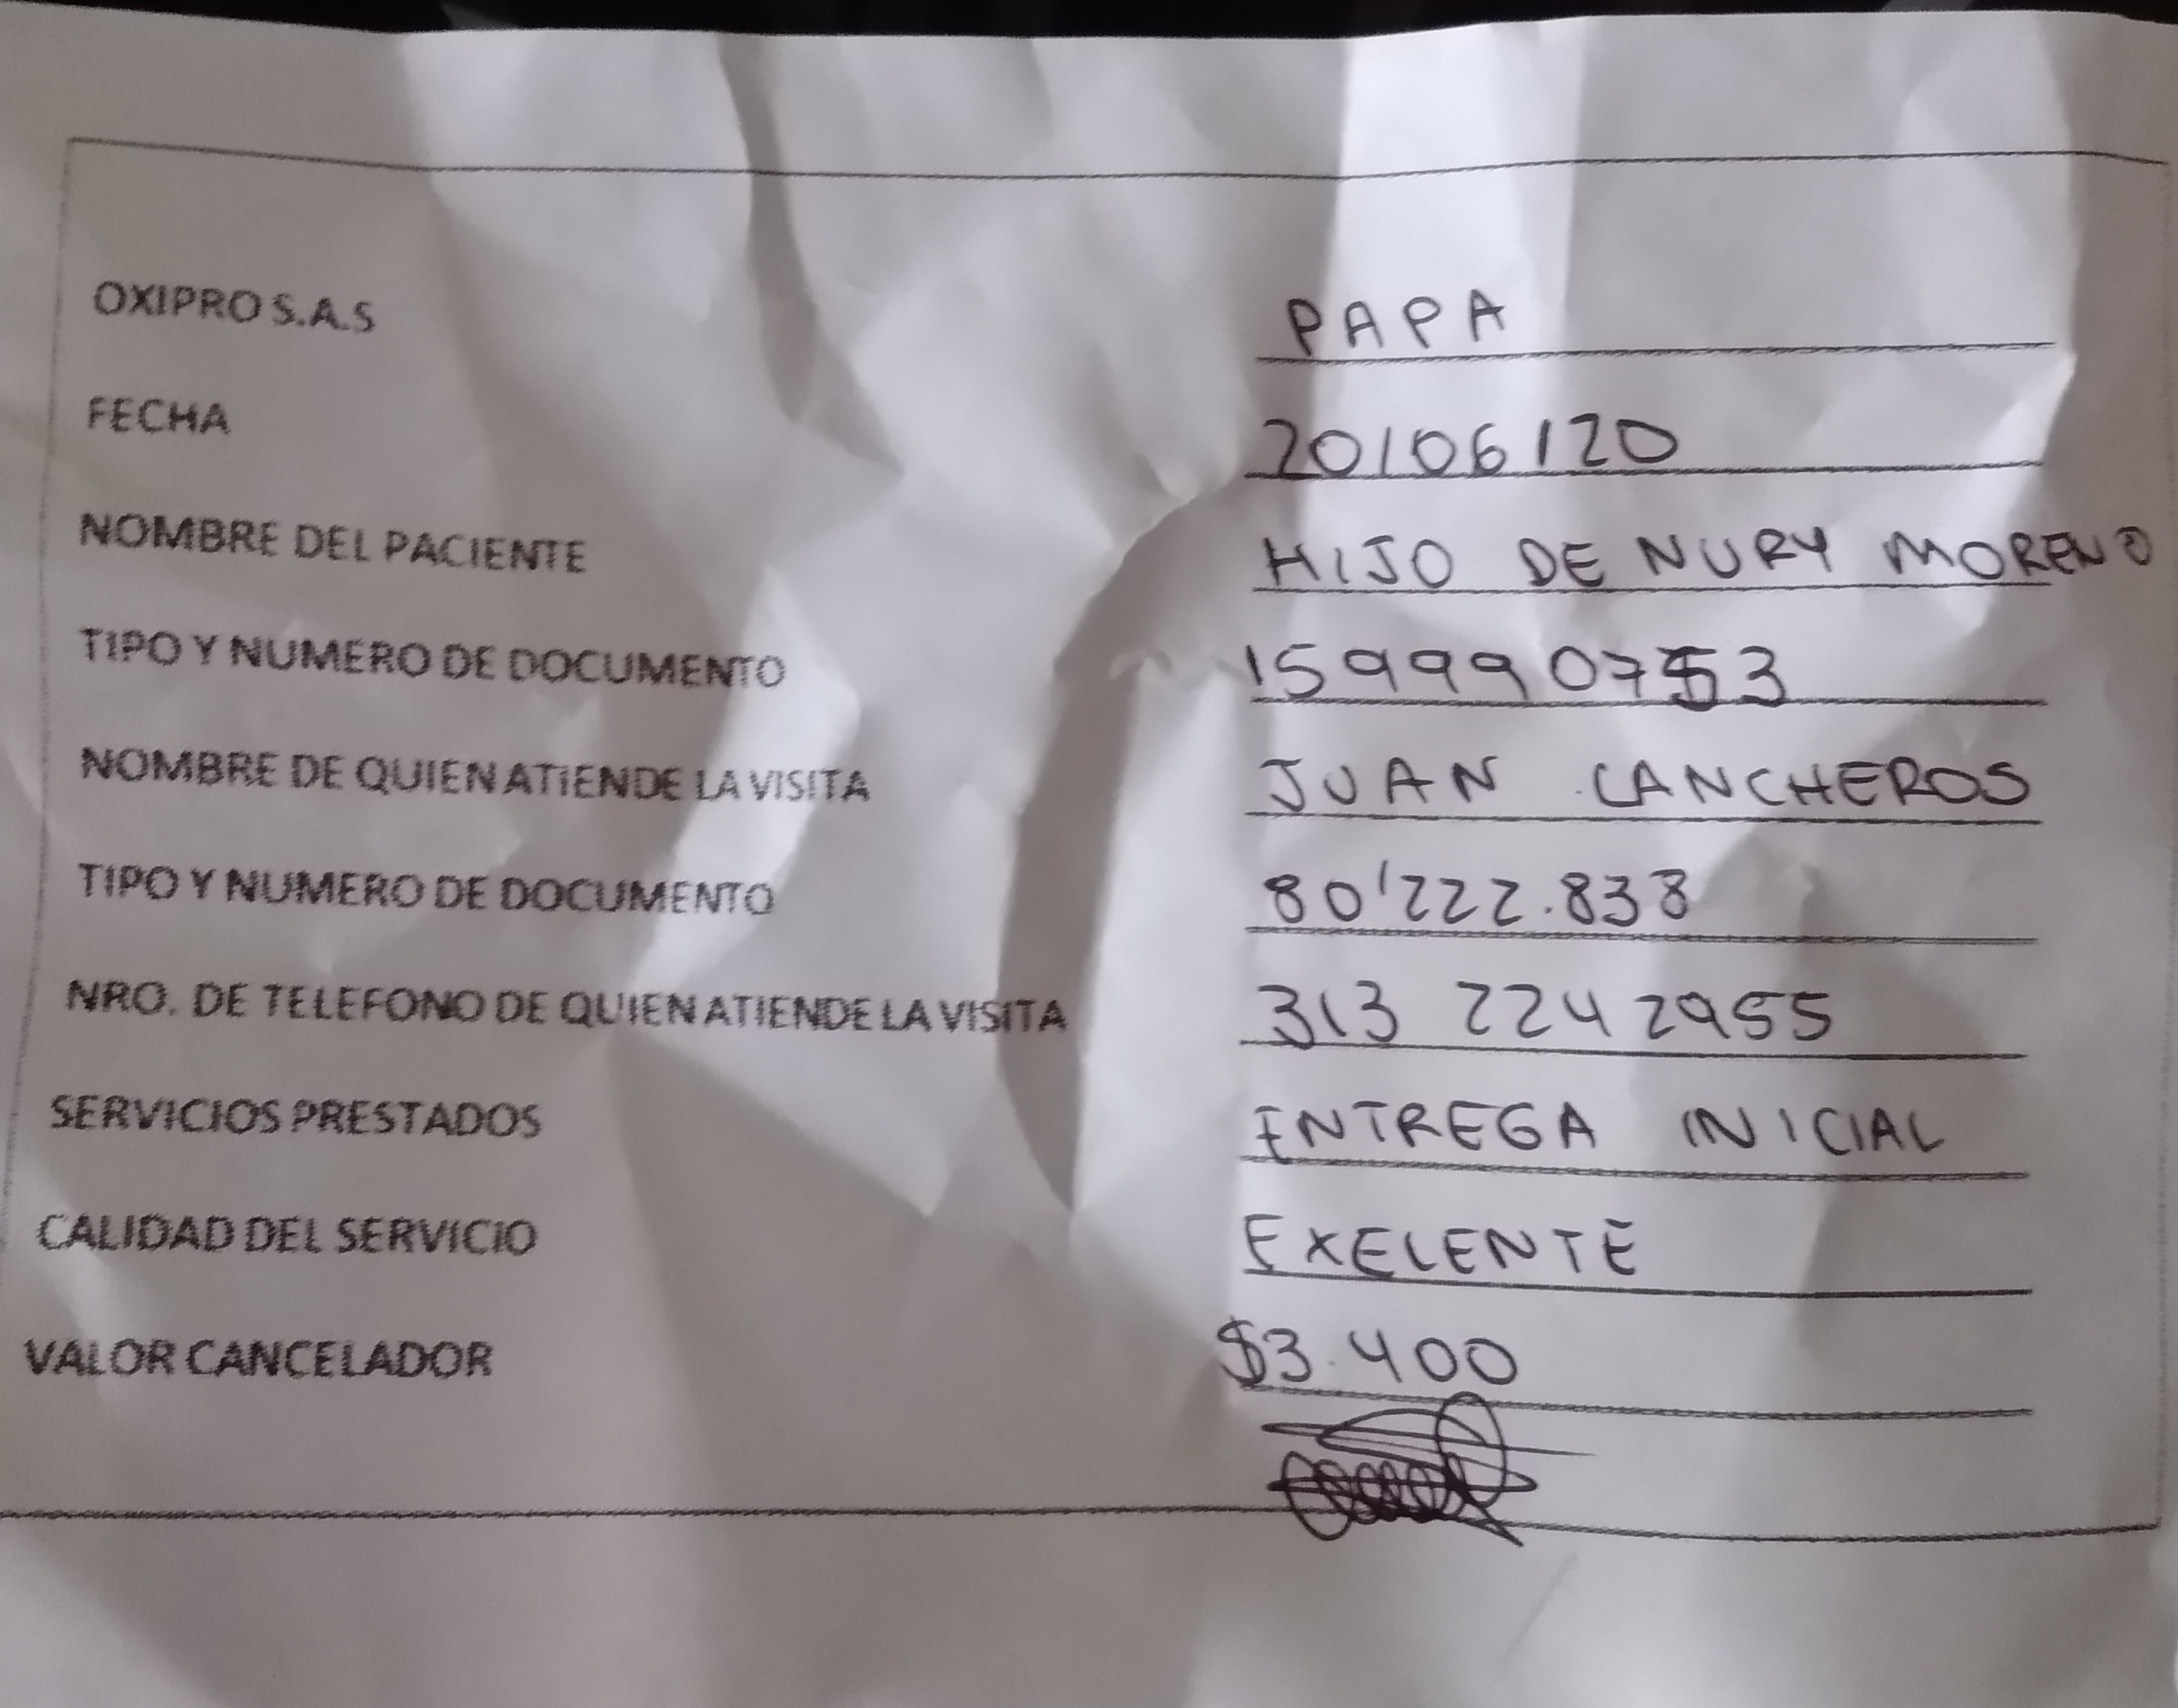 OXIPRO S.A.S PAPA
FECHA 20/06/20
NOMBRE DEL PACIENTE HIJO DE NURY MORENO
TIPO Y NUMERO DE DOCUMENTO 1599990753
NOMBRE DE QUIEN ATIENDE LA VISITA JUAN CANCHEROS
TIPO Y NUMERO DE DOCUMENTO 80'222.838
NRO. DE TELEFONO DE QUIEN ATIENDE LA VISITA 313 2242955
SERVICIOS PRESTADOS ENTREGA INICIAL
CALIDAD DEL SERVICIO EXELENTE
VALOR CANCELADOR $3.400